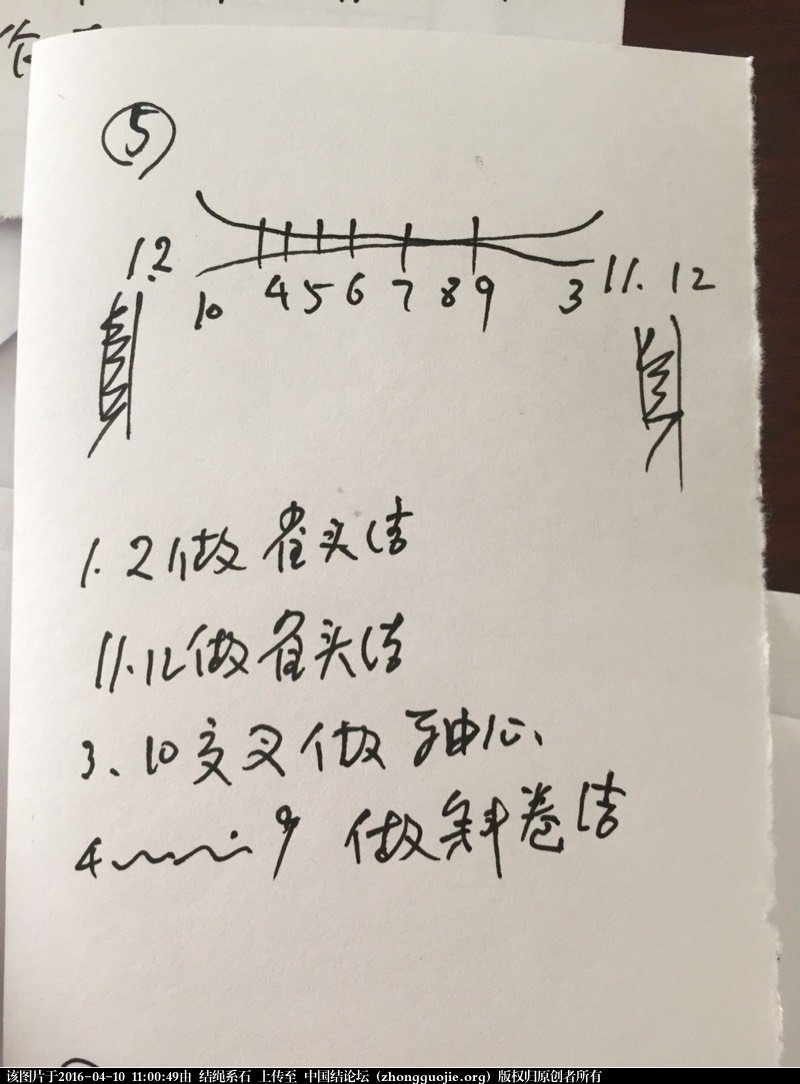 ⑤
1.2
11.12
10 4 5 6 7 8 9 3
1.2做雀头结
11.12做雀头结
3、10交叉做轴心、
4〰9 做斜卷结
该图片于2016-04-10 11:00:49由 结绳系石 上传至 中国结论坛 (zhongguojie.org) 版权归原创者所有